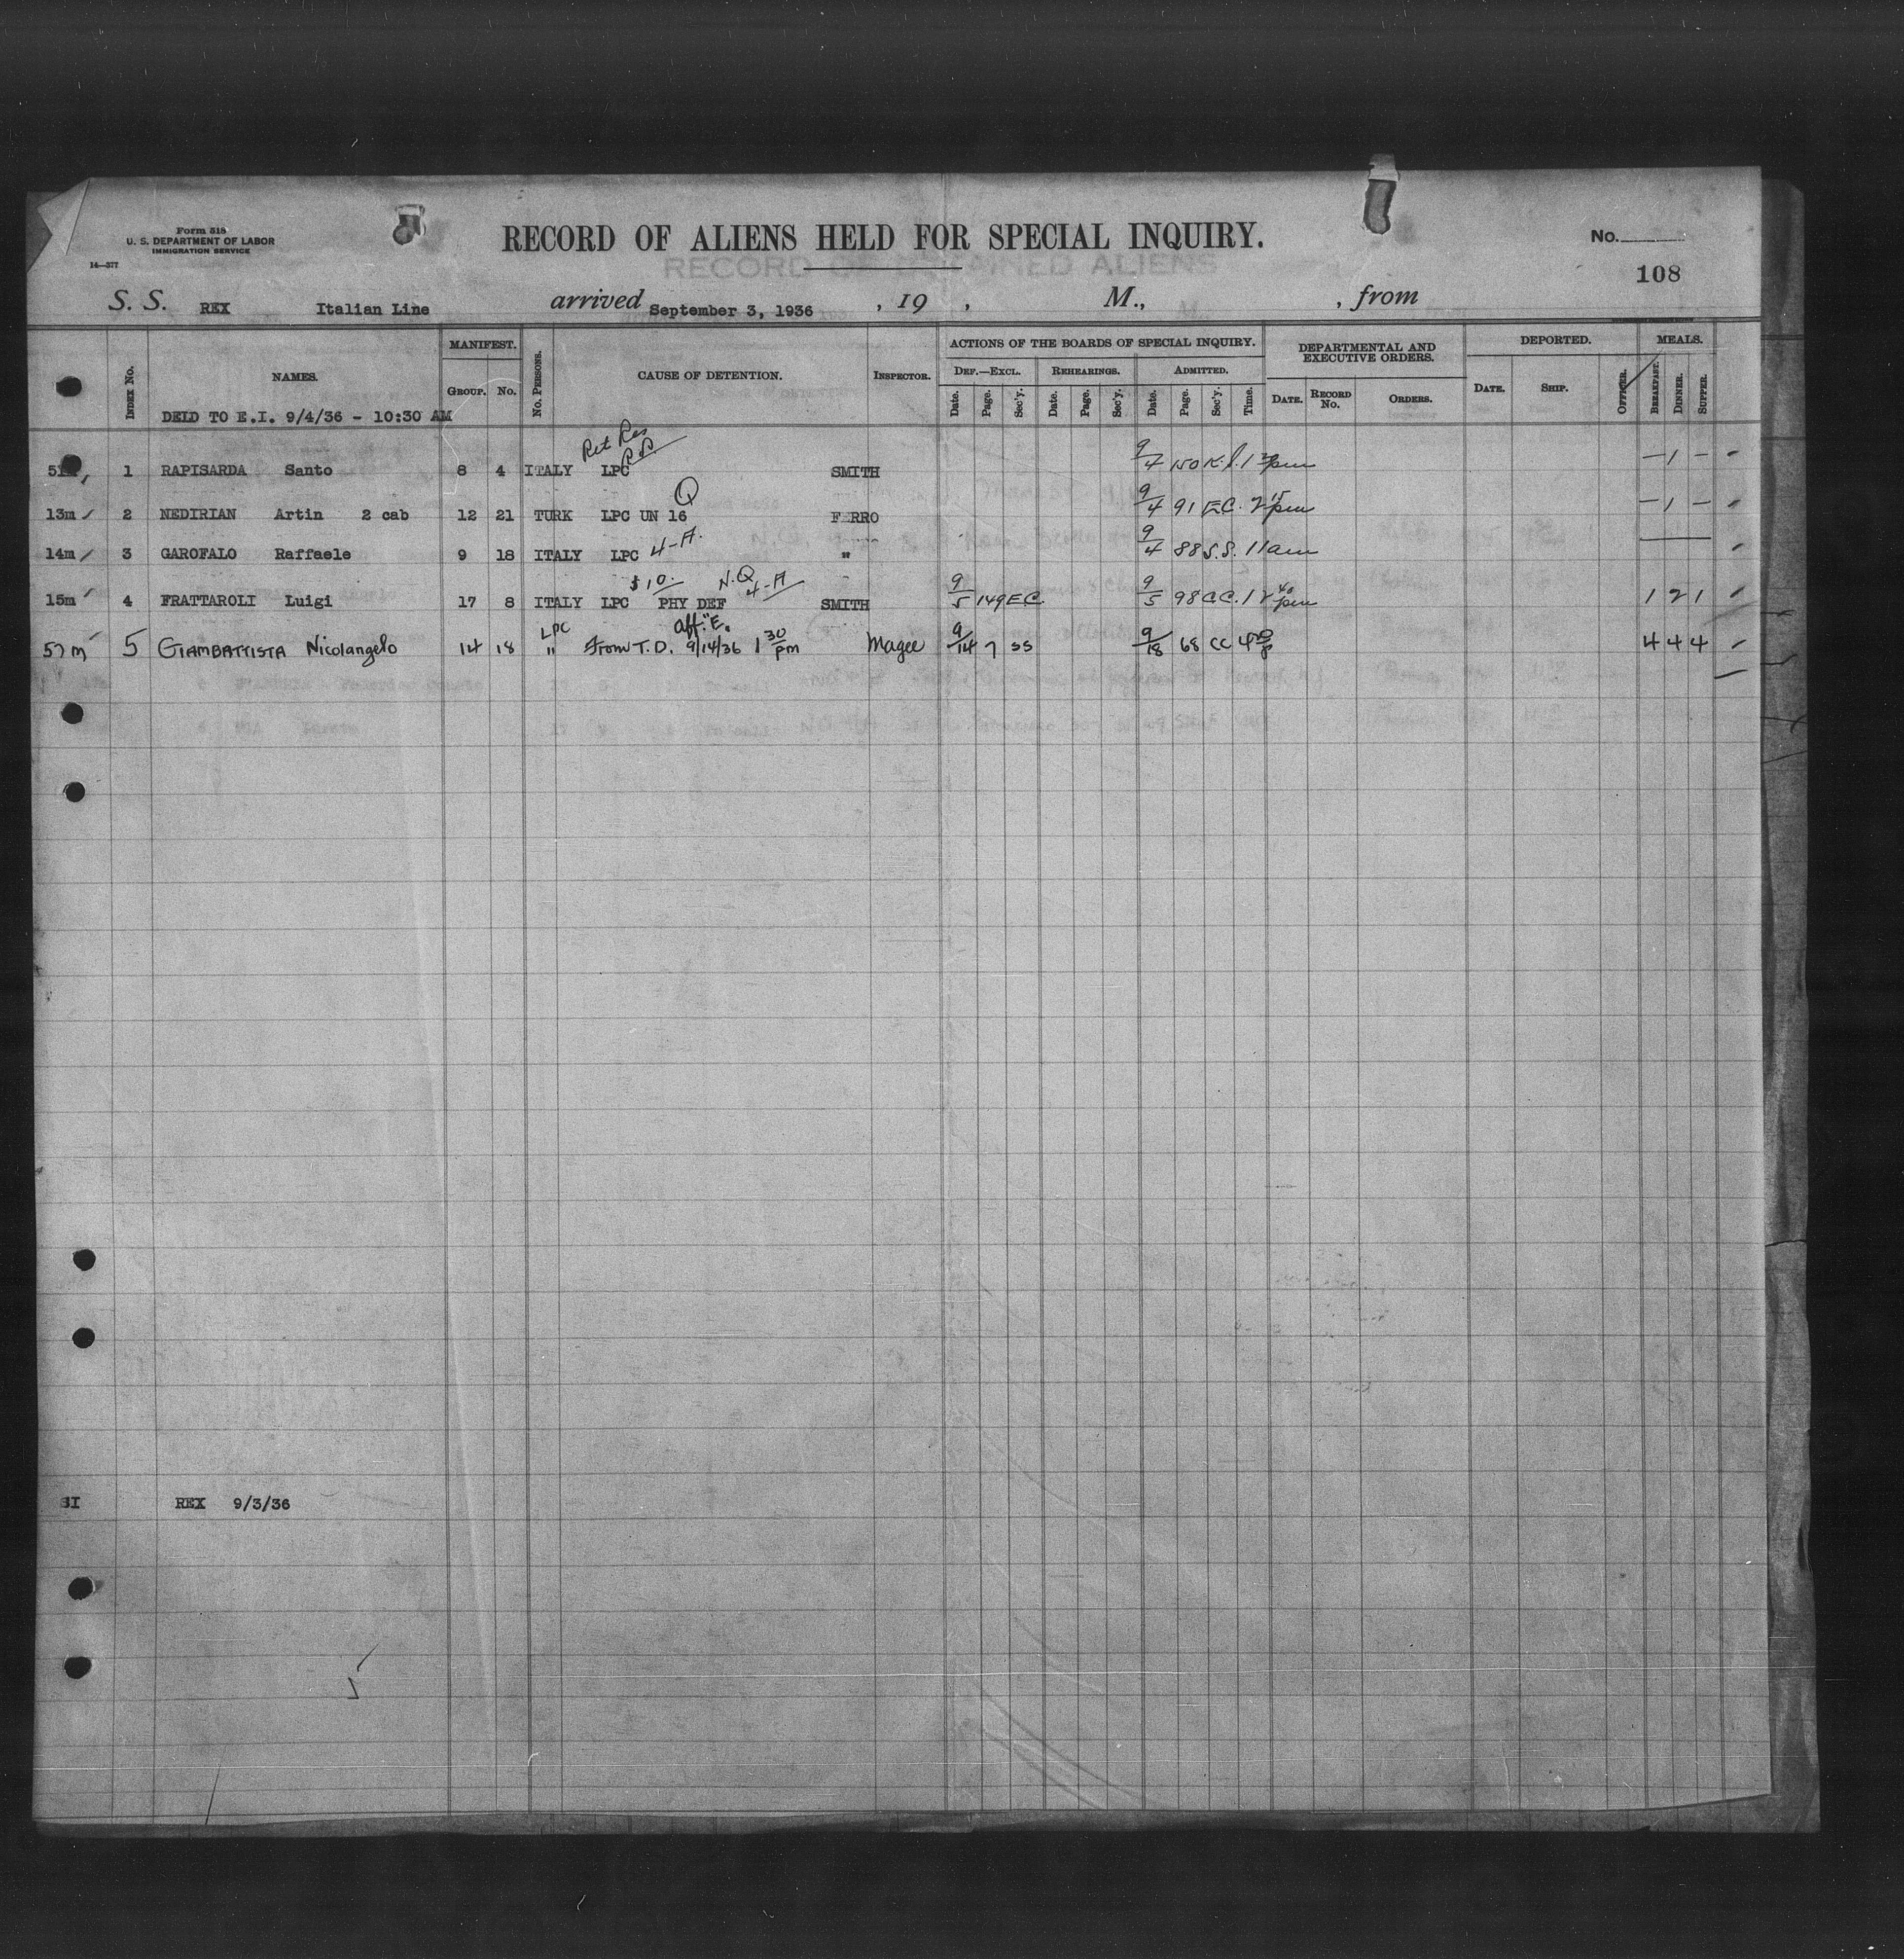 Form 518
U. S. DEPARTMENT OF LABOR
IMMIGRATION SERVICE
14—377
RECORD OF ALIENS HELD FOR SPECIAL INQUIRY.
RECORD OF DETAINED ALIENS
No.
108
S. S. REX Italian Line arrived September 3, 1936 , 19 , M., , from
INDEX No. NAMES. MANIFEST. GROUP. No. No. PERSONS. CAUSE OF DETENTION. INSPECTOR. ACTIONS OF THE BOARDS OF SPECIAL INQUIRY. DEPARTMENTAL AND EXECUTIVE ORDERS. DEPORTED. MEALS.
DEF.—EXCL. REHEARINGS. ADMITTED.
Date. Page. Sec'y. Date. Page. Sec'y. Date. Page. Sec'y. Time. DATE. RECORD No. ORDERS. DATE. SHIP. OFFICER. BREAKFAST. DINNER. SUPPER.
DELD TO E.I. 9/4/36 - 10:30 AM
Ret Res
1 RAPISARDA Santo 8 4 ITALY LPC SMITH 9/4 150 pm — 1 —
Q
13m 2 NEDIRIAN Artin 2 cab 12 21 TURK LPC UN 16 FERRO 9/4 91 EC. 2 15 pm — 1 —
14m 3 GAROFALO Raffaele 9 18 ITALY LPC 4-A. " 9/4 88 S.S. 11 am
$10. N.Q 4-A
15m 4 FRATTAROLI Luigi 17 8 ITALY LPC PHY DEF SMITH 9/5 149 EC. 9/5 98 CC. 12 40 pm 1 2 1
LPC aff. "E.
57m 5 GIAMBATTISTA Nicolangelo 14 18 " From T.D. 9/14/36 1 30 pm Magee 9/14 7 SS 9/18 68 CC 4 4 4
SI REX 9/3/36
5